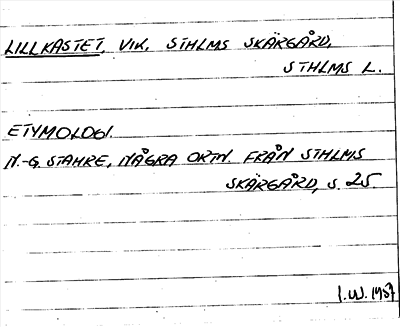 LILLKASTET, VIK, STHLMS SKÄRGÅRD,
STHLMS L.
ETYMOLOGI.
N.-G. STAHRE, NÅGRA ORTN. FRÅN STHLMS
SKÄRGÅRD, S. 25
I.W. 1987